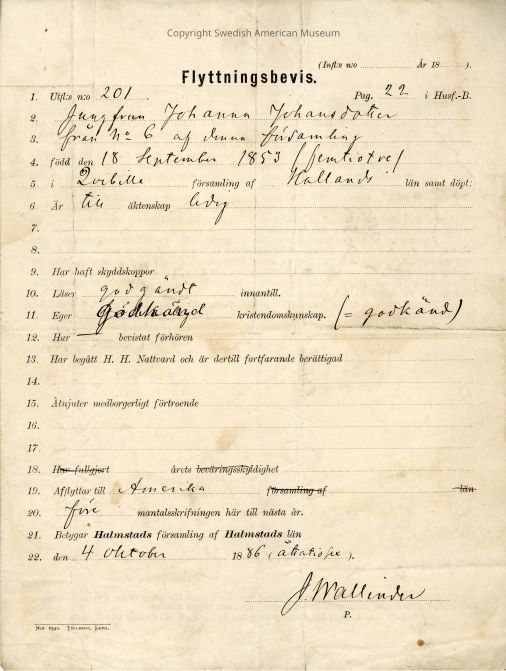 Copyright Swedish American Museum
(Infl:s n:o År 18 ).
Flyttningsbevis.
1. Utfl:s n:o 201. Pag. 22 i Husf.-B.
2. Jungfrun Johanna Johansdotter
3. från No 6 af denna församling
4. född den 18 September 1853 (femtiotre)
5. i Qvibille församling af Hallands län samt döpt:
6. Är till äktenskap ledig
7.
8.
9. Har haft skyddskoppor
10. Läser godgändt innantill.
11. Eger godkänd kristendomskunskap. (= godkänd)
12. Har bevistat förhören
13. Har begått H. H. Nattvard och är dertill fortfarande berättigad
14.
15. Åtnjuter medborgerligt förtroende
16.
17.
18. Har fullgjort årets beväringsskyldighet
19. Afflyttar till Amerika församling af län
20. före mantalsskrifningen här till nästa år.
21. Betygar Halmstads församling af Halmstads län
22. den 4 Oktober 1886 (åttatiosex).
J. Wallinder
P.